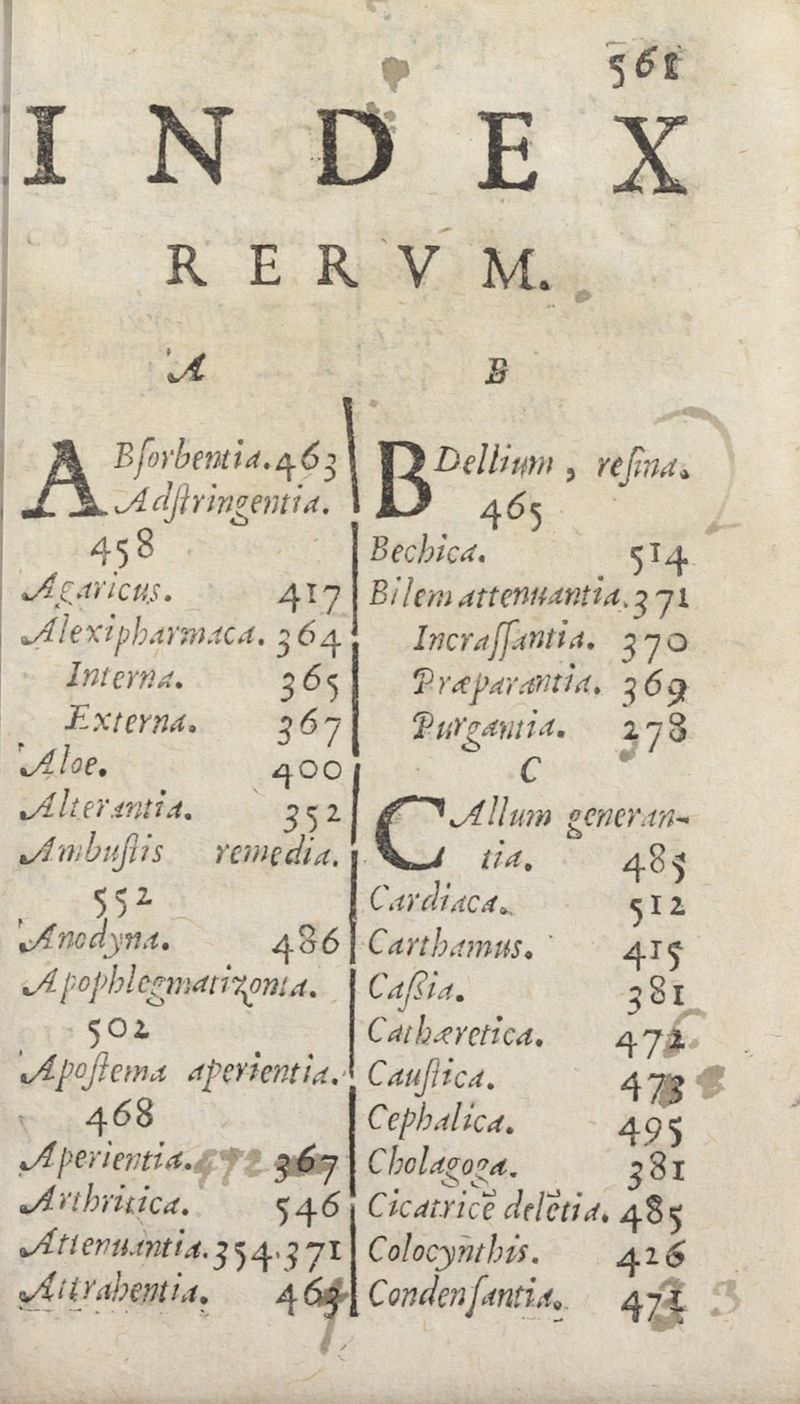 561
INDEX
RERVM.
A
ABſorbentia. 463
Adſtringentia.
458
Agaricus. 417
Alexipharmaca. 364
Interna. 365
Externa. 367
Aloe. 400
Alterantia. 352
Ambuſtis remedia.
552
Anodyna. 486
Apophlegmatizonta.
502
Apoſtema aperientia.
468
Aperientia. 472 367
Arthritica. 546
Attenuantia. 354. 371
Attrahentia. 463
B
BDellium, reſina.
465
Bechica. 514
Bilem attenuantia. 371
Incraſſantia. 370
Præparantia. 369
Purgantia. 278
C
CAllum generan-
tia. 485
Cardiaca. 512
Carthamus. 415
Caſsia. 381
Cathæretica. 472
Cauſtica. 473
Cephalica. 495
Cholagoga. 381
Cicatricē delētia. 485
Colocynthis. 426
Condenſantia. 471 3